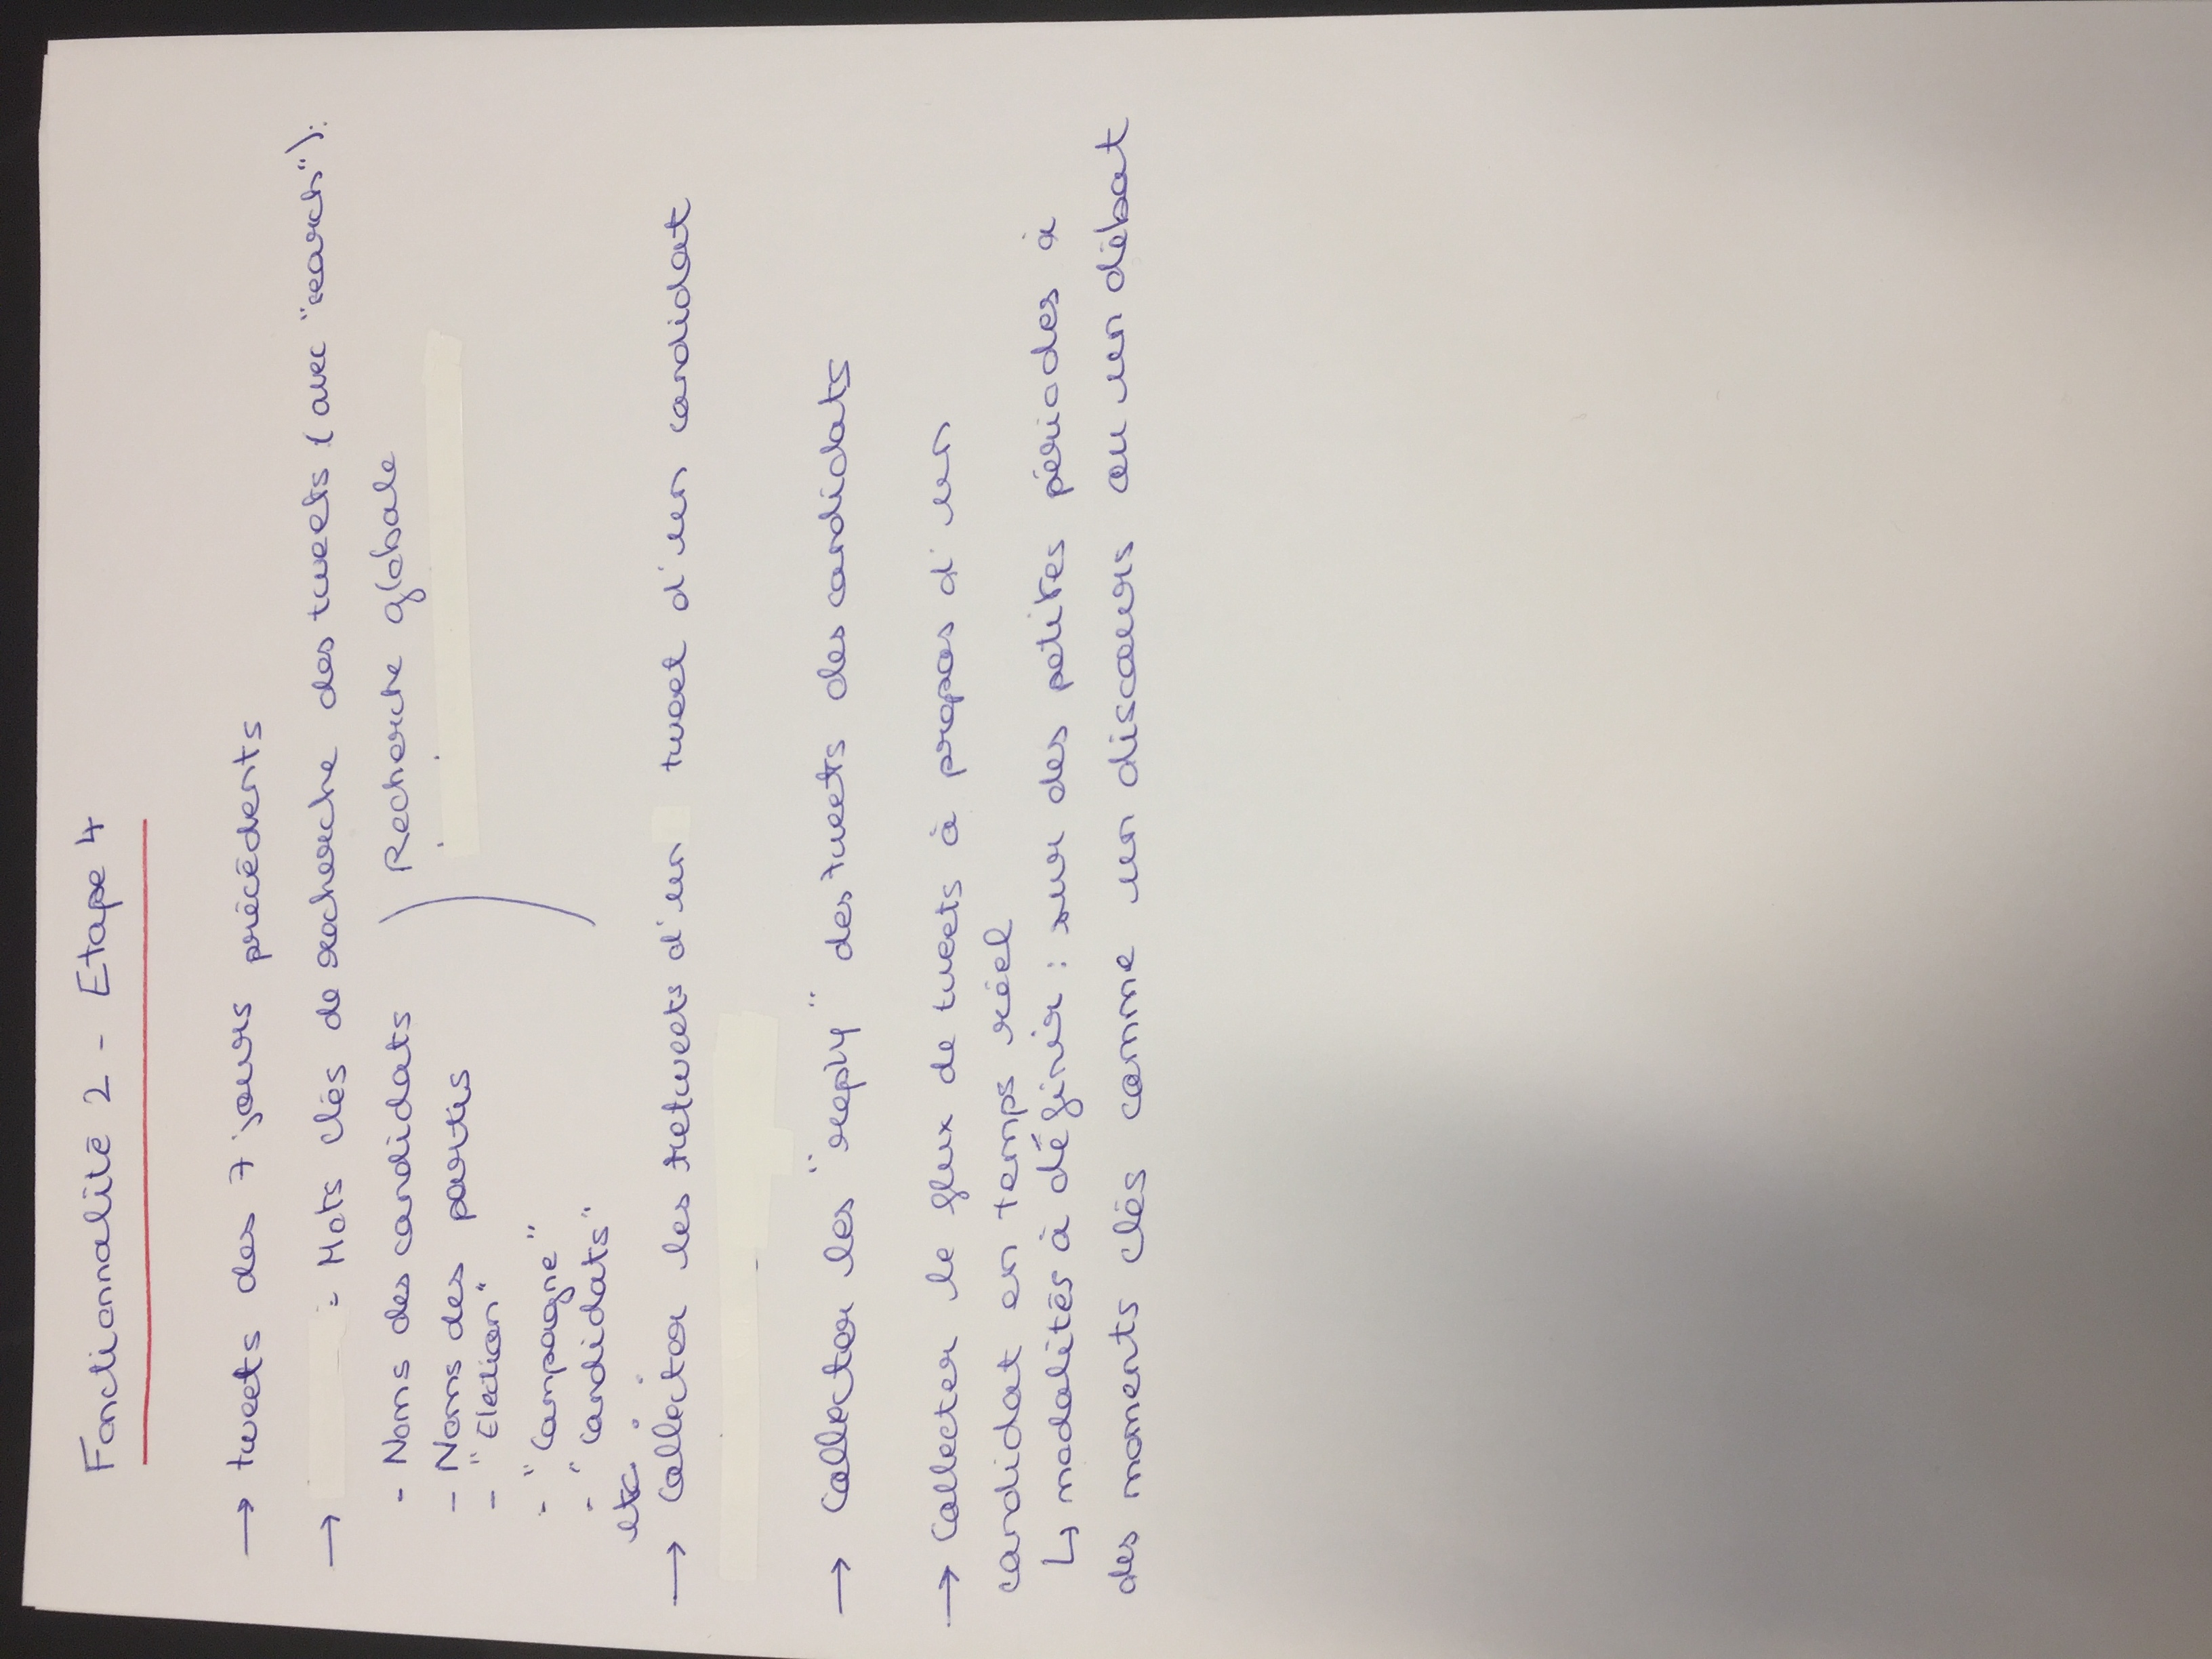 Fonctionnalité 2 - Etape 4
→ tweets des 7 jours précédents
→ : Mots clés de recherche des tweets (avec "search"):
- Noms des candidats Recherche globale
- Noms des partis
- "Election"
- "Campagne"
- "Candidats"
etc...
→ Collecter les retweets d'un tweet d'un candidat
→ Collecter les "reply" des tweets des candidats
→ Collecter le flux de tweets à propos d'un
candidat en temps réel
↳ modalités à définir : sur des petites périodes à
des moments clés comme un discours ou un débat